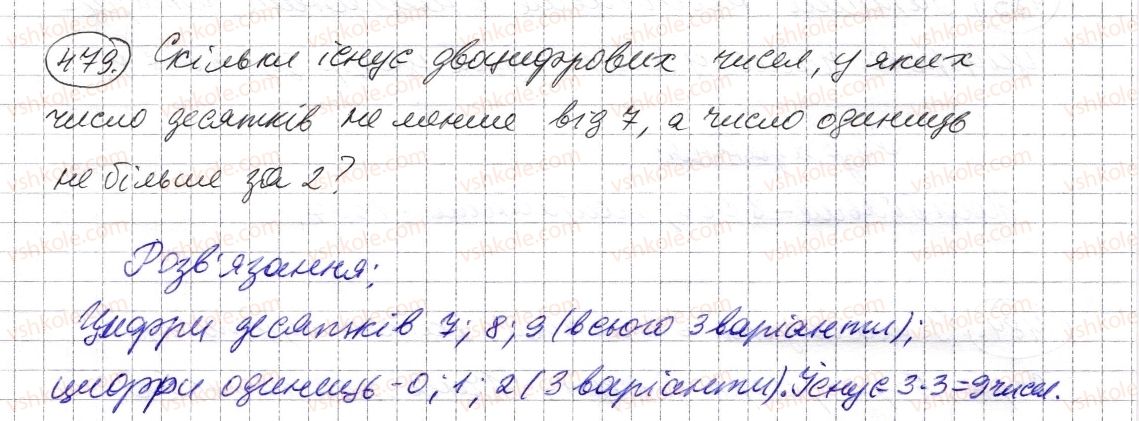 479. Скільки існує двоцифрових чисел, у яких
число десятків не менше від 7, а число одиниць
не більше за 2?
Розв'язання:
Цифри десятків 7; 8; 9 (всього 3 варіанти);
цифри одиниць - 0; 1; 2 (3 варіанти). Існує 3·3=9 чисел.